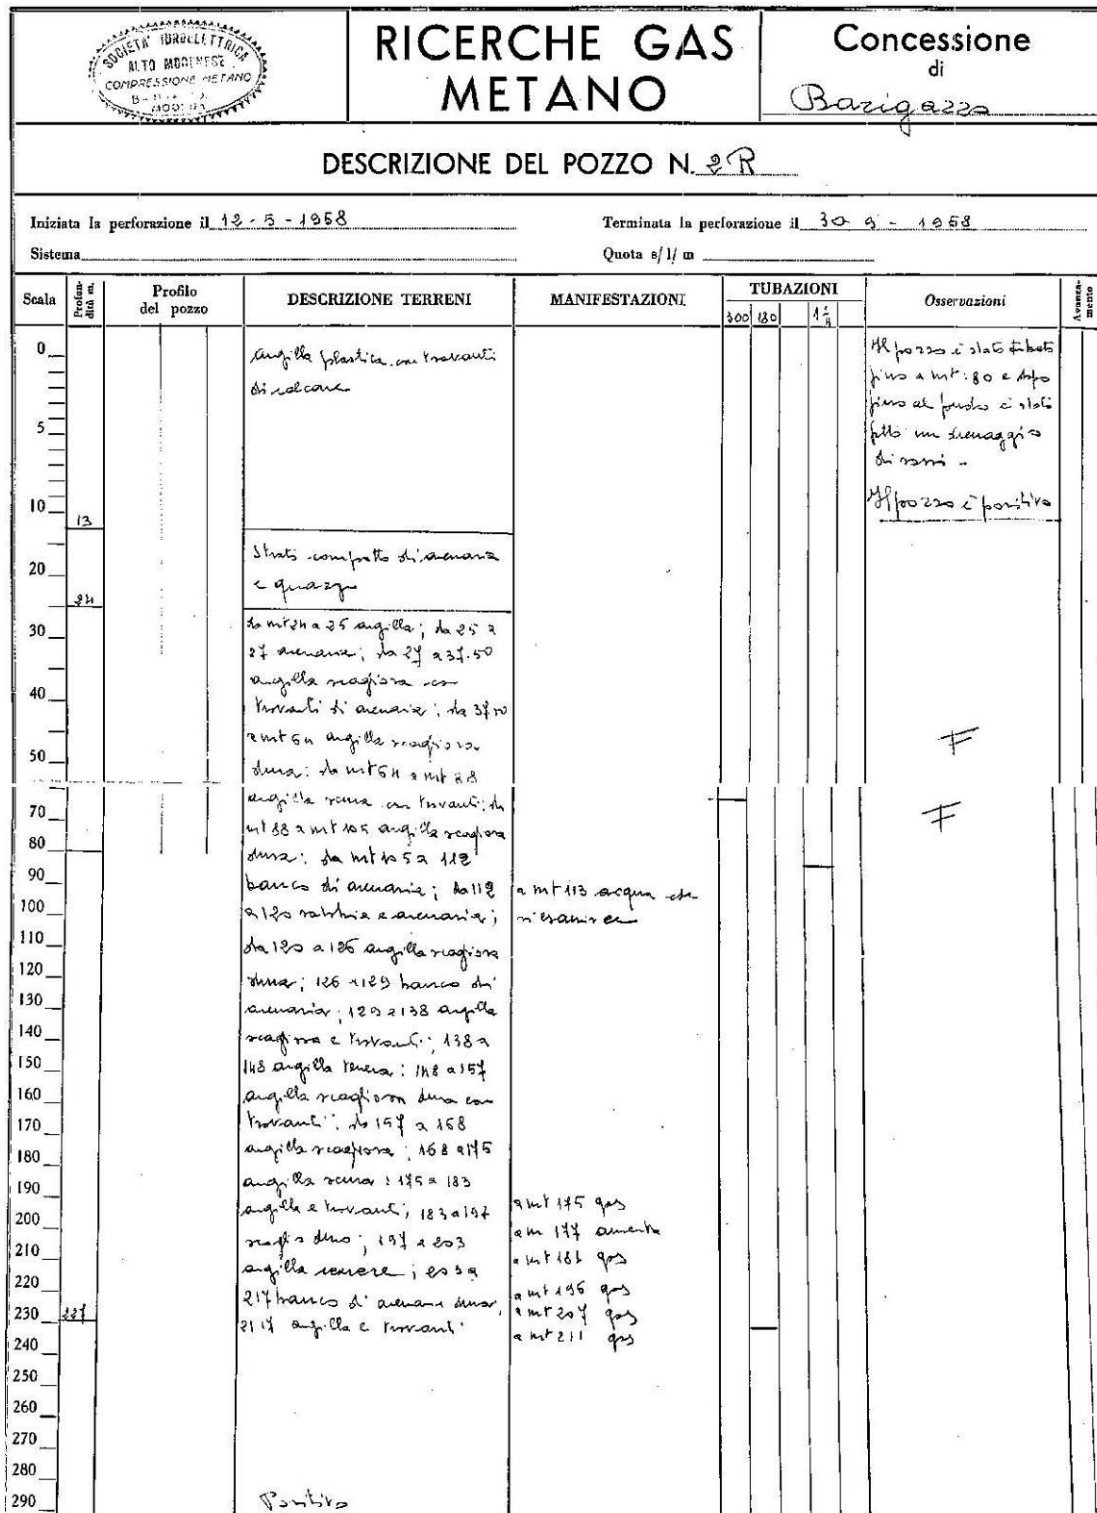 SOCIETA' IDROELETTRICA
ALTO MODENESE
COMPRESSIONE METANO
MODENA
RICERCHE GAS
METANO
Concessione
di
Barigazzo
DESCRIZIONE DEL POZZO N. 2R
Iniziata la perforazione il 12-5-1958
Terminata la perforazione il 30 9 - 1958
Sistema
Quota s/l/ m
Scala
Profondità m.
Profilo
del pozzo
DESCRIZIONE TERRENI
MANIFESTAZIONI
TUBAZIONI
300 180
Osservazioni
Avanzamento
0
5
10
13
20
24
30
40
50
70
80
90
100
110
120
130
140
150
160
170
180
190
200
210
220
230
227
240
250
260
270
280
290
argilla plastica con trovanti
di calcare
Strati compatto di arenaria
e quarzo
da mt 24 a 25 argilla; da 25 a
27 arenaria; da 27 a 37.50
argilla scagliosa con
trovanti di arenaria; da 37.50
a mt 54 argilla scagliosa
dura: da mt 54 a mt 88
argilla scura con trovanti; da
mt 88 a mt 105 argilla scagliosa
dura: da mt 105 a 112
banco di arenaria; da 112
a 120 sabbia e arenaria;
da 120 a 126 argilla scagliosa
dura; 126 a 129 banco di
arenaria; 129 a 138 argilla
scagliosa e trovanti; 138 a
148 argilla tenera: 148 a 157
argilla scagliosa dura con
trovanti: da 157 a 168
argilla scagliosa; 168 a 175
argilla scura: 175 a 183
argilla e trovanti; 183 a 197
scaglie dure; 197 a 203
argilla; 203 a
217 banco di arenaria dura,
217 argilla e trovanti
Positivo
a mt 113 acqua che
si esaurisce
a mt 175 gas
a m 177 aumenta
a mt 181 gas
a mt 196 gas
a mt 207 gas
a mt 211 gas
Il pozzo è stato tubato
fino a mt: 80 e dopo
fino al fondo è stato
fatto un drenaggio
di sassi -
Il pozzo è positivo
F
F